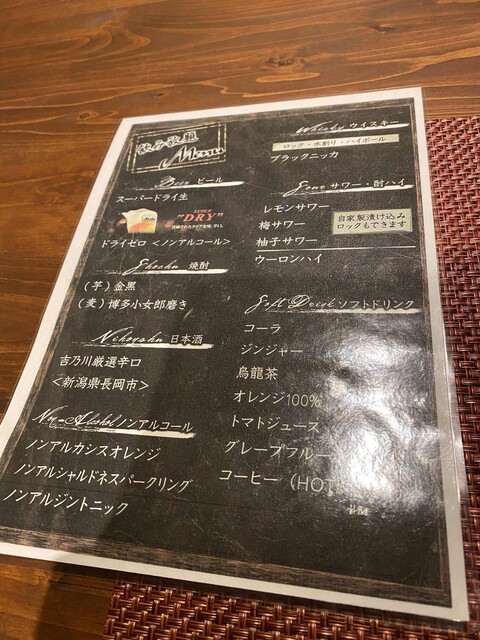 飲み放題
Menu
Beer ビール
スーパードライ生
SUPER
"DRY"
ドライゼロ <ノンアルコール>
Shochu 焼酎
(芋) 金黒
(麦) 博多小女郎磨き
Nihonshu 日本酒
吉乃川厳選辛口
<新潟県長岡市>
Non Alcohol ノンアルコール
ノンアルカシスオレンジ
ノンアルシャルドネスパークリング
ノンアルジントニック
Whisky ウイスキー
ロック・水割り・ハイボール
ブラックニッカ
Sour サワー・酎ハイ
レモンサワー
梅サワー
柚子サワー
自家製漬け込み
ロックもできます
ウーロンハイ
Soft Drink ソフトドリンク
コーラ
ジンジャー
烏龍茶
オレンジ100%
トマトジュース
グレープフルー
コーヒー (HOT